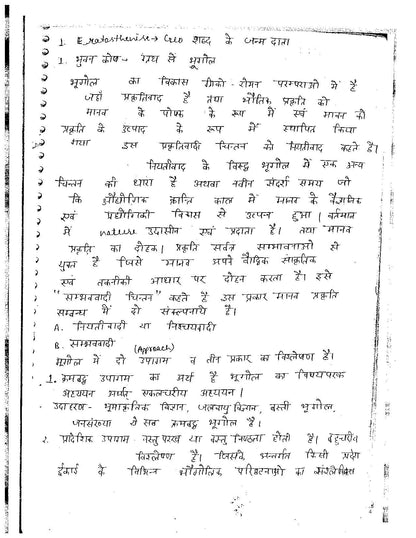 1. Eratosthenise → Geo शब्द के जन्म दाता
1. भुवन कोष - ग्रंथ से भूगोल
भूगोल का विकास ग्रीको-रोमन परम्पराओं में है
जहाँ प्रकृतिवाद है तथा भौतिक प्रकृति को
मानव के पोषक के रूप में एवं मानव को
प्रकृति के उत्पाद के रूप में स्थापित किया
गया इस प्रकृतिवादी चिन्तन को नियतिवाद कहते है।
नियतीवाद के विरुद्ध भूगोल में एक अन्य
चिन्तन की धारा है अथवा नवीन संदर्भ समय जो
कि औधौगिक क्रान्ति काल में मानव के वैज्ञानिक
एवं प्रधौगिकी विकास से उत्पन्न हुआ। वर्तमान
में nature उदासीन एवं प्रदाता है। तथा मानव
प्रकृति का दोहक। प्रकृति सर्वत्र सम्भावनाओं से
युक्त है जिसे मानव अपने बौद्धिक सांस्कृतिक
एवं तकनीकी आधार पर दोहन करता है। इसे
"सम्भववादी चिन्तन" कहते है इस प्रकार मानव प्रकृति
सम्बन्ध में दो संकल्पनाये है।
A. नियतीवादी या निश्चयवादी
B. सम्भववादी
(Approach)
भूगोल में दो उपागम व तीन प्रकार का विश्लेषण है।
1. क्रमबद्ध उपागम का अर्थ है भूगोल का विषयपरक
अध्ययन अर्थात एकलचरीय अध्ययन।
उदाहरण- भूआकृतिक विज्ञान, जलवायु विज्ञान, बस्ती भूगोल,
जनसंख्या ये सब क्रमबद्ध भूगोल है।
2. प्रादेशिक उपागम - वस्तुपरख या वस्तु निष्ठता होती है। बहुचरीय
विश्लेषण है। जिसके अन्तर्गत किसी प्रदेश
ईकाई के विभिन्न भौगोलिक परिघटनाओं का संश्लेषित